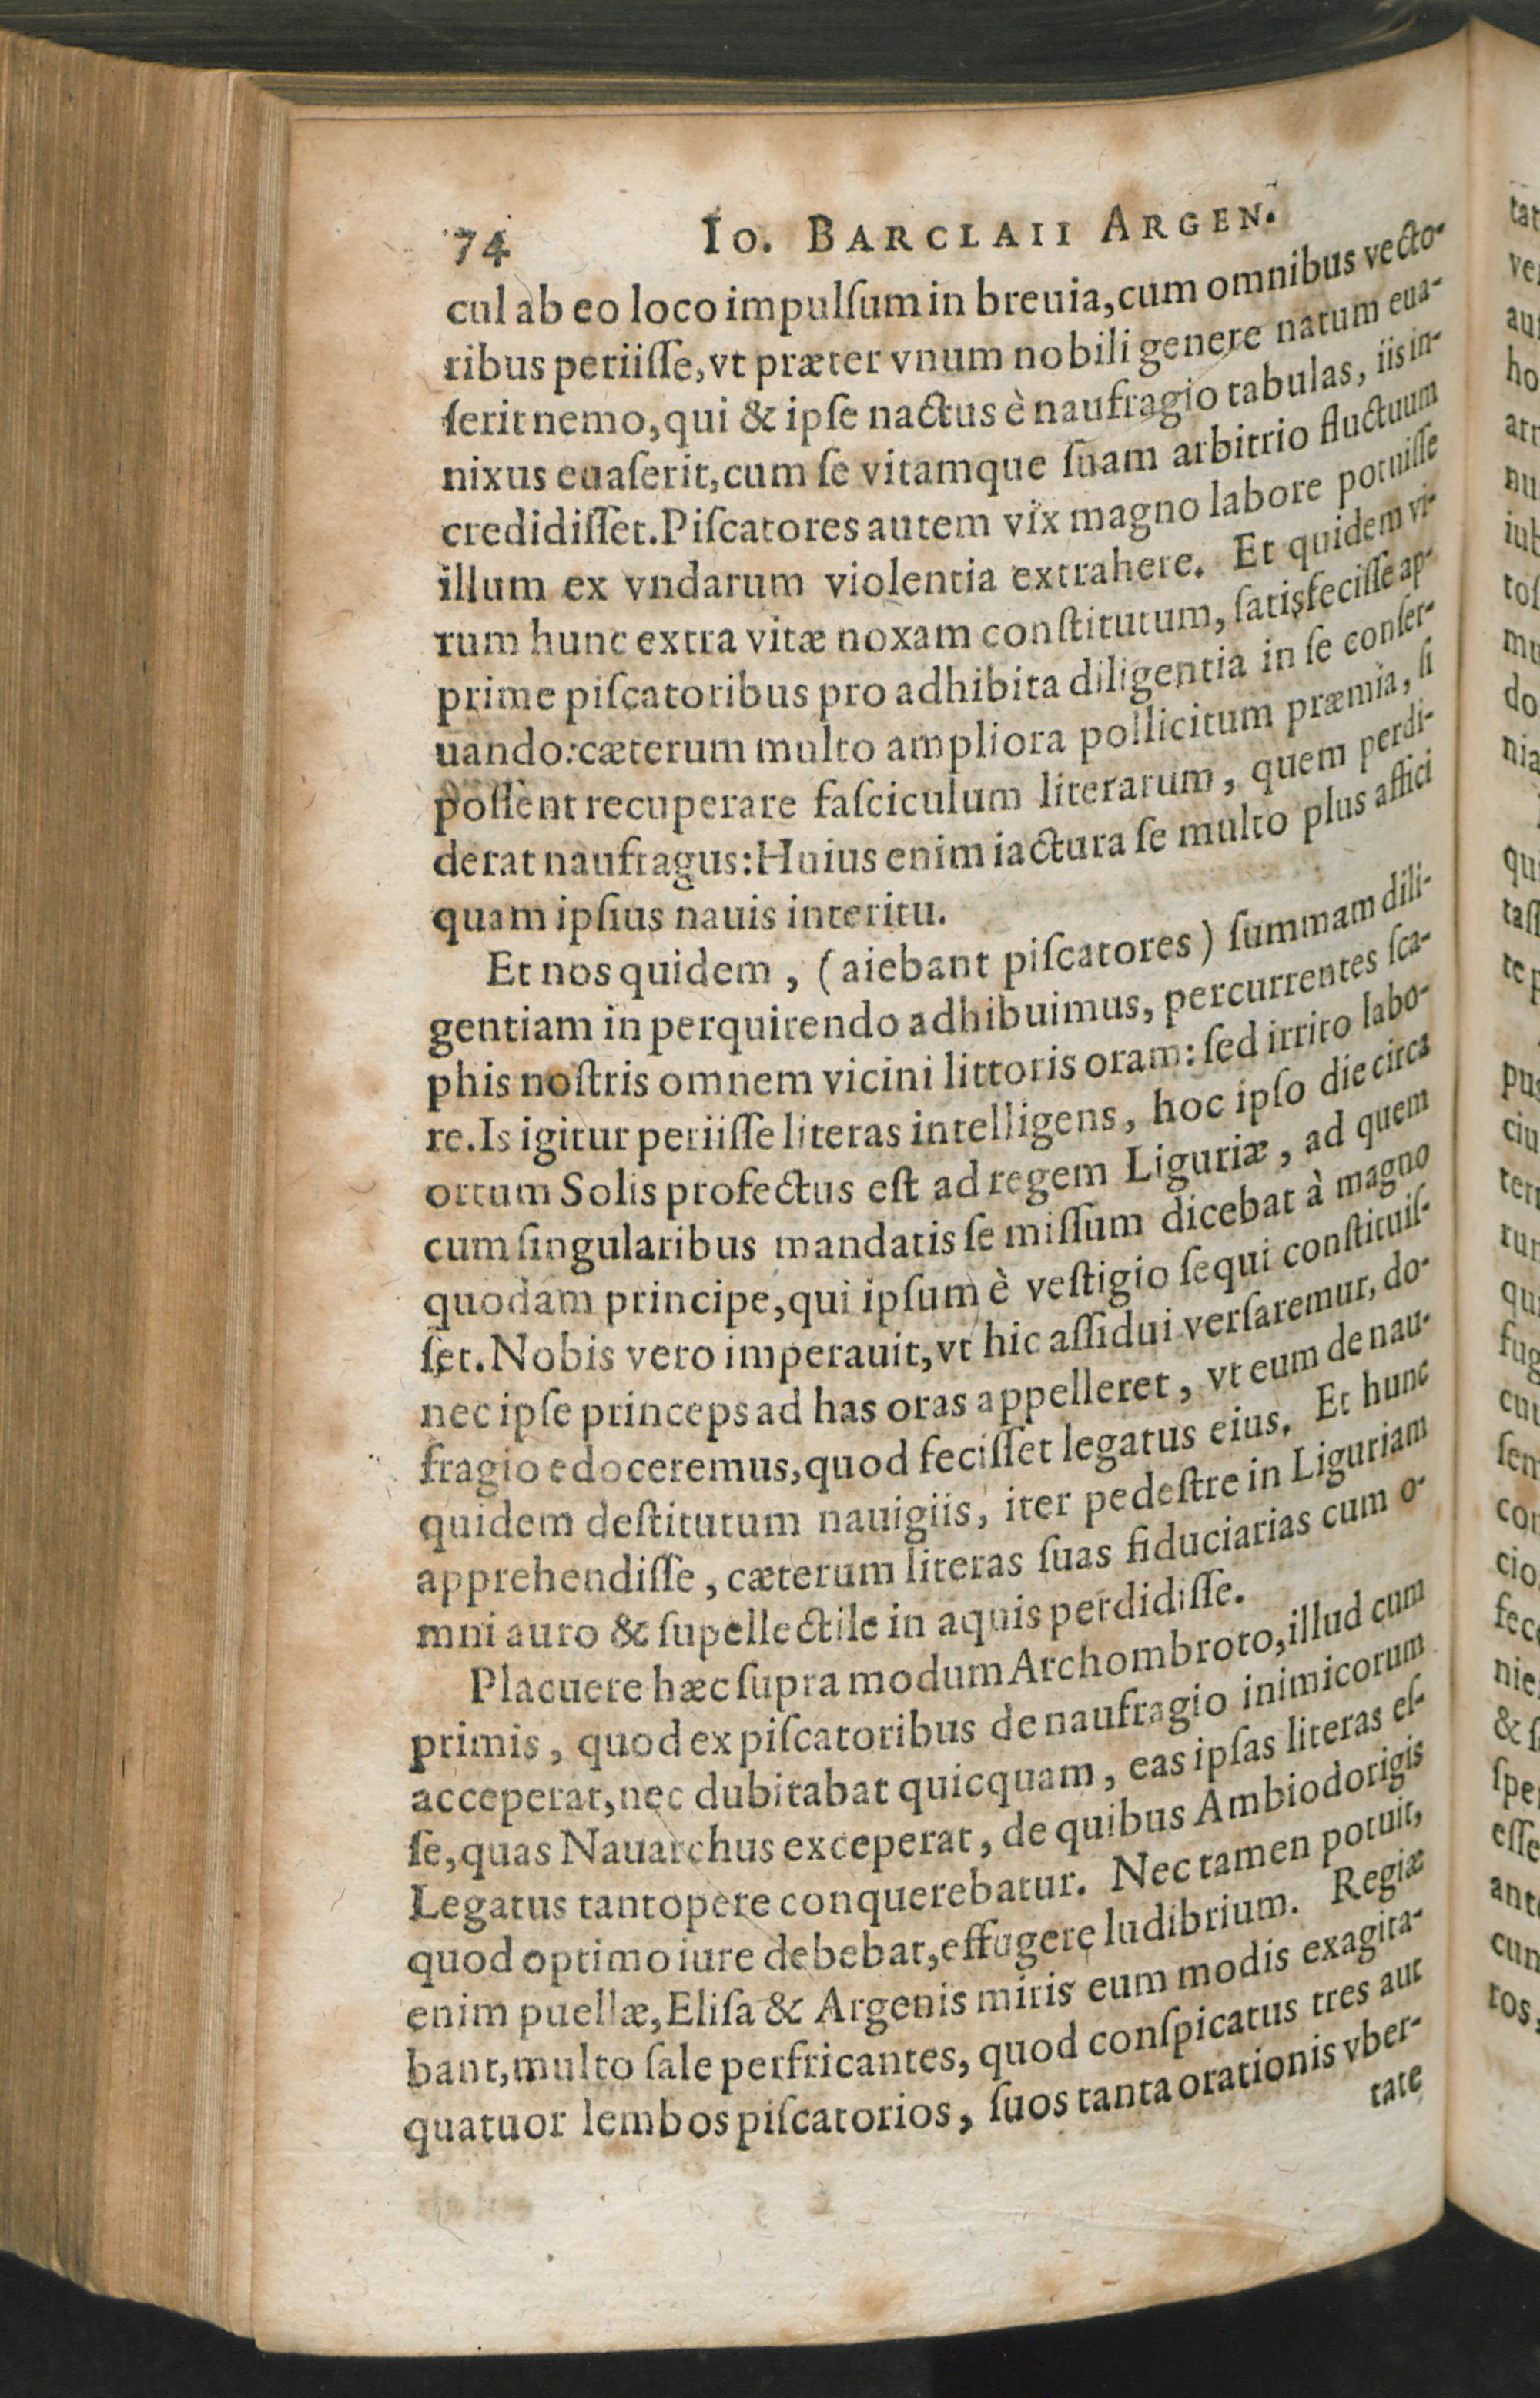 74 Io. BARCLAII ARGEN.
cul ab eo loco impulſum in breuia, cum omnibus vecto-
ribus periiſſe, vt præter vnum nobili genere natum eua-
ſerit nemo, qui & ipſe nactus è naufragio tabulas, iis in-
nixus euaſerit, cum ſe vitamque ſuam arbitrio fluctuum
credidiſſet. Piſcatores autem vix magno labore potuiſſe
illum ex vndarum violentia extrahere. Et quidem vi-
rum hunc extra vitæ noxam conſtitutum, ſatisfeciſſe ap-
prime piſcatoribus pro adhibita diligentia in ſe conſer-
uando: cæterum multo ampliora pollicitum præmia, ſi
poſſent recuperare faſciculum literarum, quem perdi-
derat naufragus: Huius enim iactura ſe multo plus affici
quam ipſius nauis interitu.
Et nos quidem, (aiebant piſcatores) ſummam dili-
gentiam in perquirendo adhibuimus, percurrentes ſca-
phis noſtris omnem vicini littoris oram: ſed irrito labo-
re. Is igitur periiſſe literas intelligens, hoc ipſo die circa
ortum Solis profectus eſt ad regem Liguriæ, ad quem
cum ſingularibus mandatis ſe miſſum dicebat à magno
quodam principe, qui ipſum è veſtigio ſequi conſtituiſ-
ſet. Nobis vero imperauit, vt hic aſſidui verſaremur, do-
nec ipſe princeps ad has oras appelleret, vt eum de nau-
fragio edoceremus, quod feciſſet legatus eius. Et hunc
quidem deſtitutum nauigiis, iter pedeſtre in Liguriam
apprehendiſſe, cæterum literas ſuas fiduciarias cum o-
mni auro & ſupellectile in aquis perdidiſſe.
Placuere hæc ſupra modum Archombroto, illud cum
primis, quod ex piſcatoribus de naufragio inimicorum
acceperat, nec dubitabat quicquam, eas ipſas literas eſ-
ſe, quas Nauarchus exceperat, de quibus Ambiodorigis
Legatus tantopere conquerebatur. Nec tamen potuit,
quod optimo iure debebat, effugere ludibrium. Regiæ
enim puellæ, Eliſa & Argenis miris eum modis exagita-
bant, multo ſale perfricantes, quod conſpicatus tres aut
quatuor lembos piſcatorios, ſuos tanta orationis vber-
tate